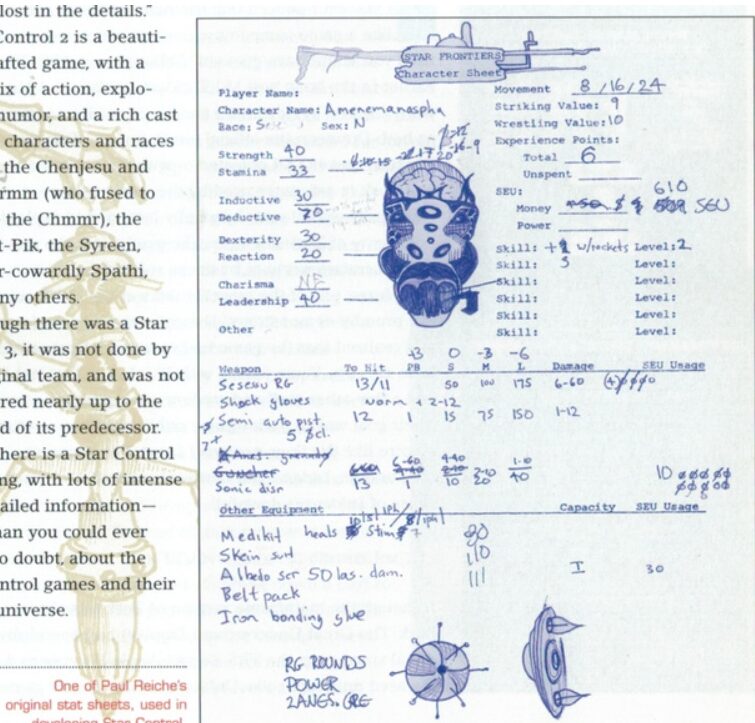 lost in the details."
Control 2 is a beauti-
afted game, with a
ix of action, explo-
humor, and a rich cast
characters and races
the Chenjesu and
rmm (who fused to
the Chmmr), the
t-Pik, the Syreen,
r-cowardly Spathi,
ny others.
ough there was a Star
3, it was not done by
ginal team, and was not
red nearly up to the
d of its predecessor.
here is a Star Control
ng, with lots of intense
ailed information—
han you could ever
o doubt, about the
ntrol games and their
universe.
One of Paul Reiche's
original stat sheets, used in
developing Star Control.
STAR FRONTIERS
Character Sheet
Player Name:
Character Name: Amenemanaspha
Race: Sex: N
Strength 40
Stamina 33
Inductive 30
Deductive 70
Dexterity 30
Reaction 20
Charisma
Leadership 40
Other
Movement 8/16/24
Striking Value: 9
Wrestling Value: 10
Experience Points:
Total 6
Unspent
SEU: 610
Money SEU
Power
Skill: w/rockets Level: 2
Skill: 3 Level:
Skill: Level:
Skill: Level:
Skill: Level:
Skill: Level:
+3 0 -3 -6
Weapon To Hit PB S M L Damage SEU Usage
Sesesu RG 13/11 50 100 175 6-60
Shock gloves worn - 2-12
Semi auto pist. 12 1 15 75 150 1-12
5 cl.
Sonic disr 13 1 10 20 40 10
Other Equipment Capacity SEU Usage
Medikit heals Stim
Skein suit
Albedo scr 50 las. dam. I 30
Belt pack
Iron bonding glue
RG ROUNDS
POWER